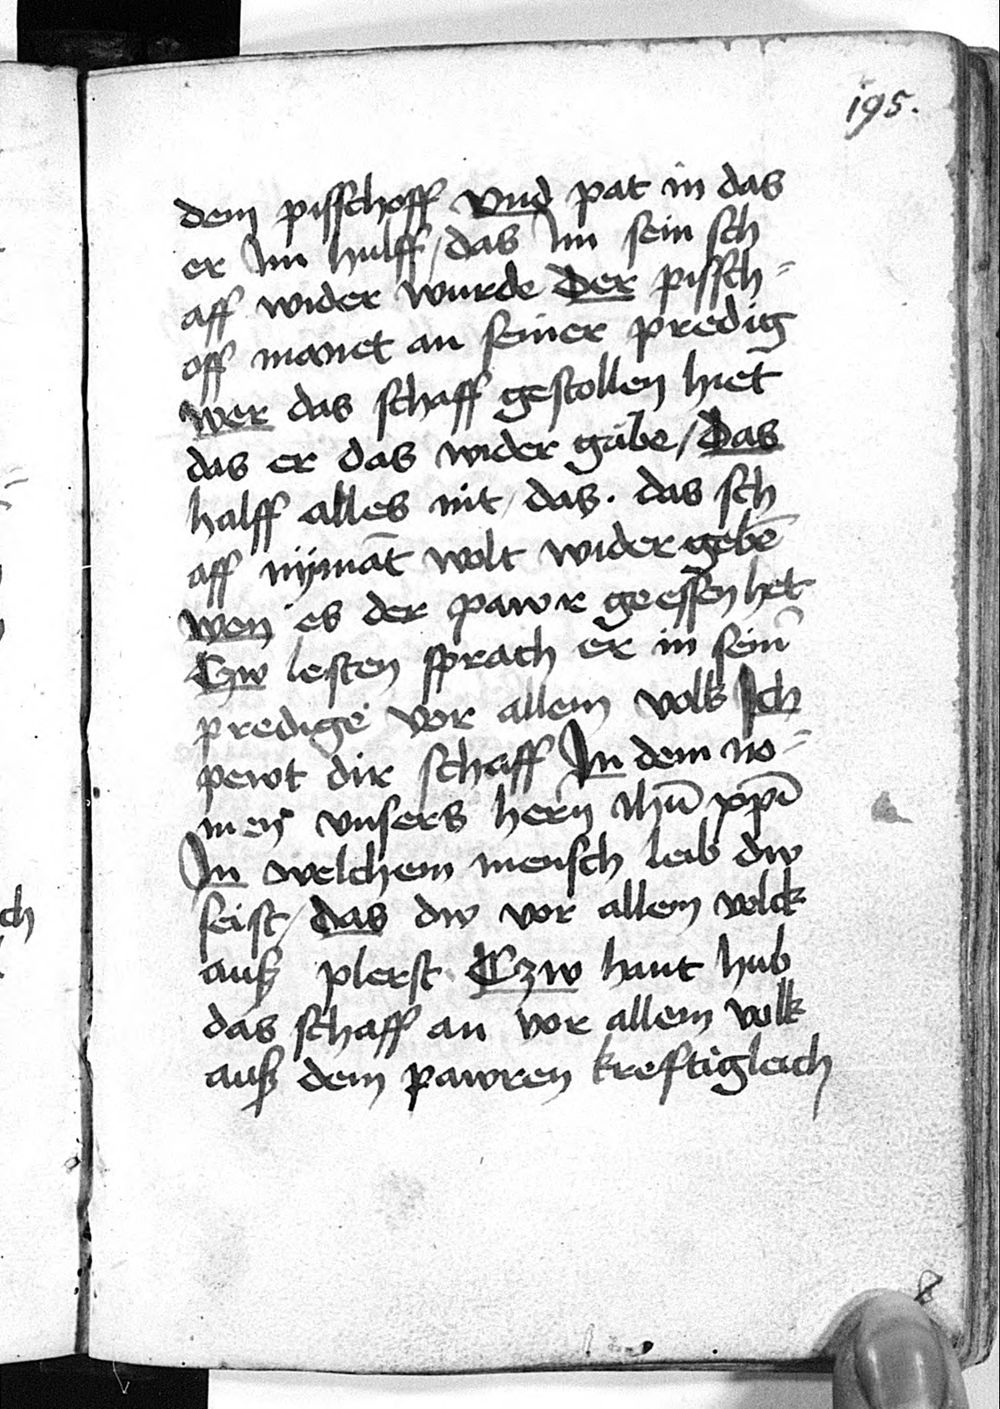 195.
dem pisschoff vnd pat in das
er Im hulff / das Im sein sch
aff wider wurde Der pissch-
off manet an seiner predig
wer das schaff gestollen hiet
das er das wider gäbe / Das
halff alles nit / das. das sch
aff nÿmāt wolt wider gebē
wen es der pawr geessen het
Czw lesten sprach er in sein̄
predige vor allem volk Ich
pewt dir schaff In dem no-
men vnsers hern̄ Ihū xpī
In welchem mensch leib dw
seist / das dw vor allem volck
auß plerst Czw hant hub
das schaff an vor allem volk
auß dem pawren kreftigleich
ch